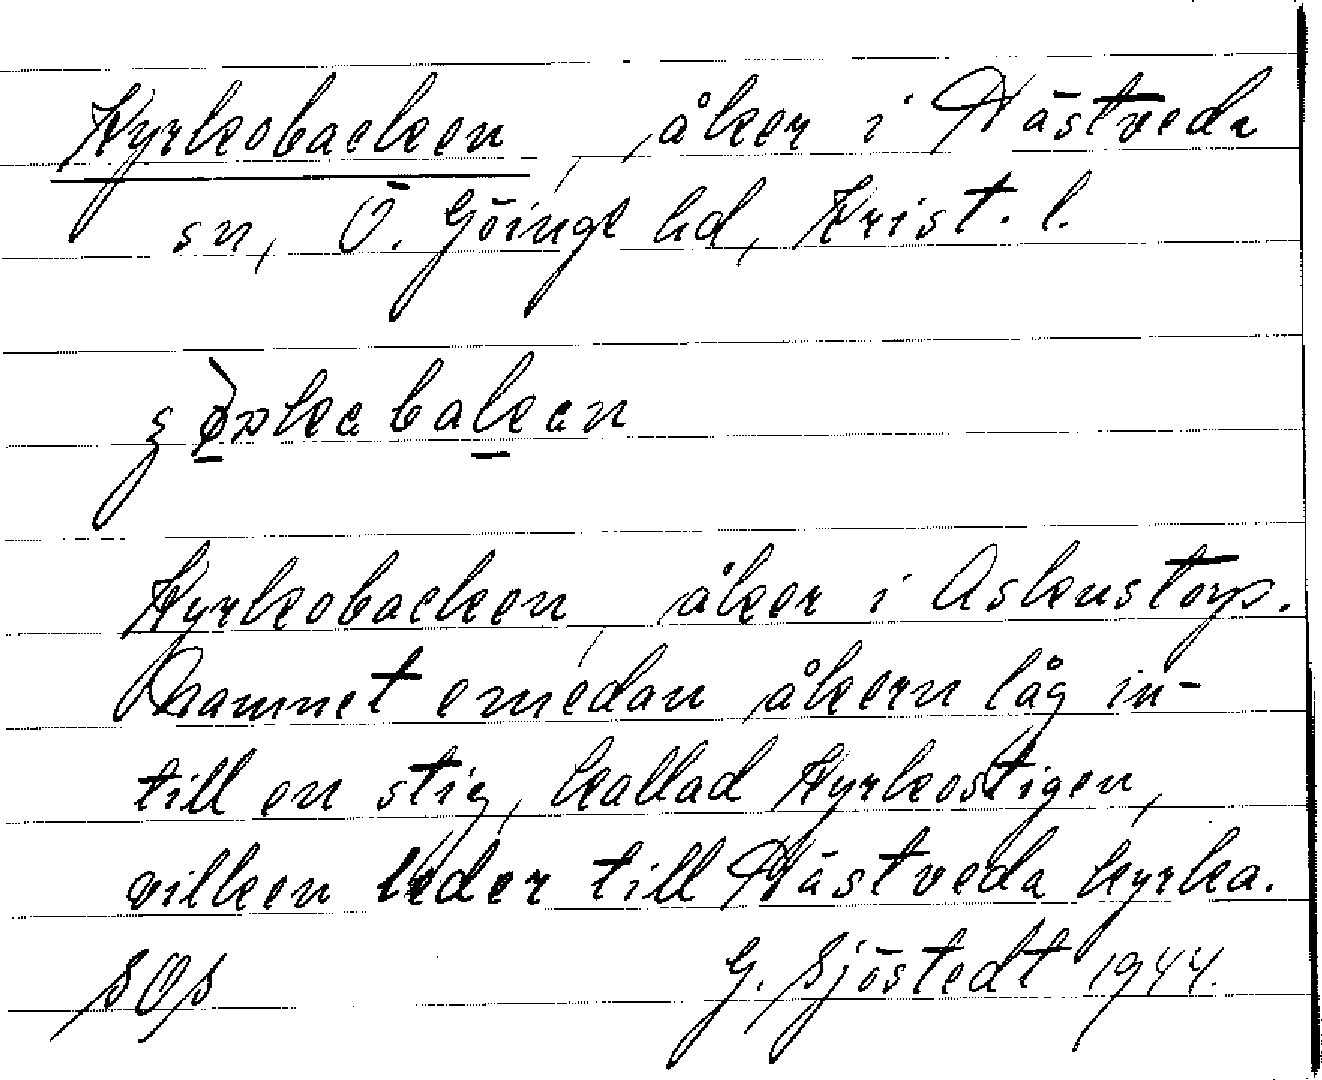 Kyrkobacken, åker i Hästveda
sn, Ö. Göinge hd, Krist. l.
Kyrkobacken, åker i Askustorp.
Namnet emedan åkern låg in-
till en stig, kallad Kyrkostigen,
vilken leder till Hästveda kyrka.
SOS G. Sjöstedt 1944.